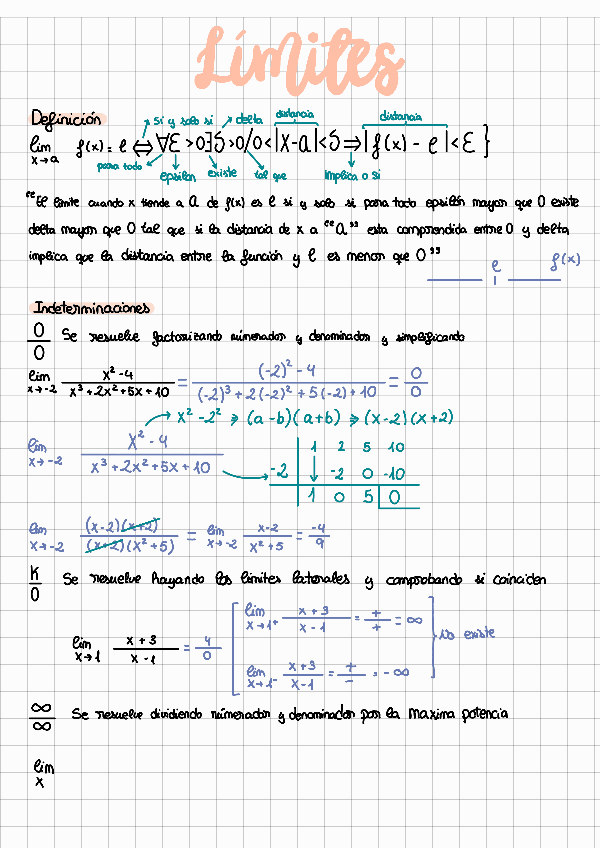 Límites
Definición
si y solo si delta distancia distancia
lim x→a f(x) = l ⇔ ∀ε >0 ∃ δ >0 / 0<|x-a|<δ ⇒ |f(x) - l|<ε }
para todo epsilon existe tal que implica o si
"El límite cuando x tiende a a de f(x) es l si y solo si para todo epsilón mayor que 0 existe
delta mayor que 0 tal que si la distancia de x a "a" esta comprendida entre 0 y delta
implica que la distancia entre la función y l es menor que 0"
l f(x)
Indeterminaciones
0/0 Se resuelve factorizando númerador y denominador y simplificando
lim x→-2 (x²-4)/(x³+2x²+5x+10) = ((-2)²-4)/((-2)³+2(-2)²+5(-2)+10) = 0/0
x²-2² ⇒ (a-b)(a+b) ⇒ (x-2)(x+2)
lim x→-2 (x²-4)/(x³+2x²+5x+10)
1 2 5 10
-2 ↓ -2 0 -10
1 0 5 0
lim x→-2 ((x-2)(x+2))/((x+2)(x²+5)) = lim x→-2 (x-2)/(x²+5) = -4/9
K/0 Se resuelve hayando los límites laterales y comprobando si coinciden
lim x→1⁺ (x+3)/(x-1) = +/+ = ∞
lim x→1 (x+3)/(x-1) = 4/0 No existe
lim x→1⁻ (x+3)/(x-1) = +/- = -∞
∞/∞ Se resuelve dividiendo númerador y denominador por la maxima potencia
lim x